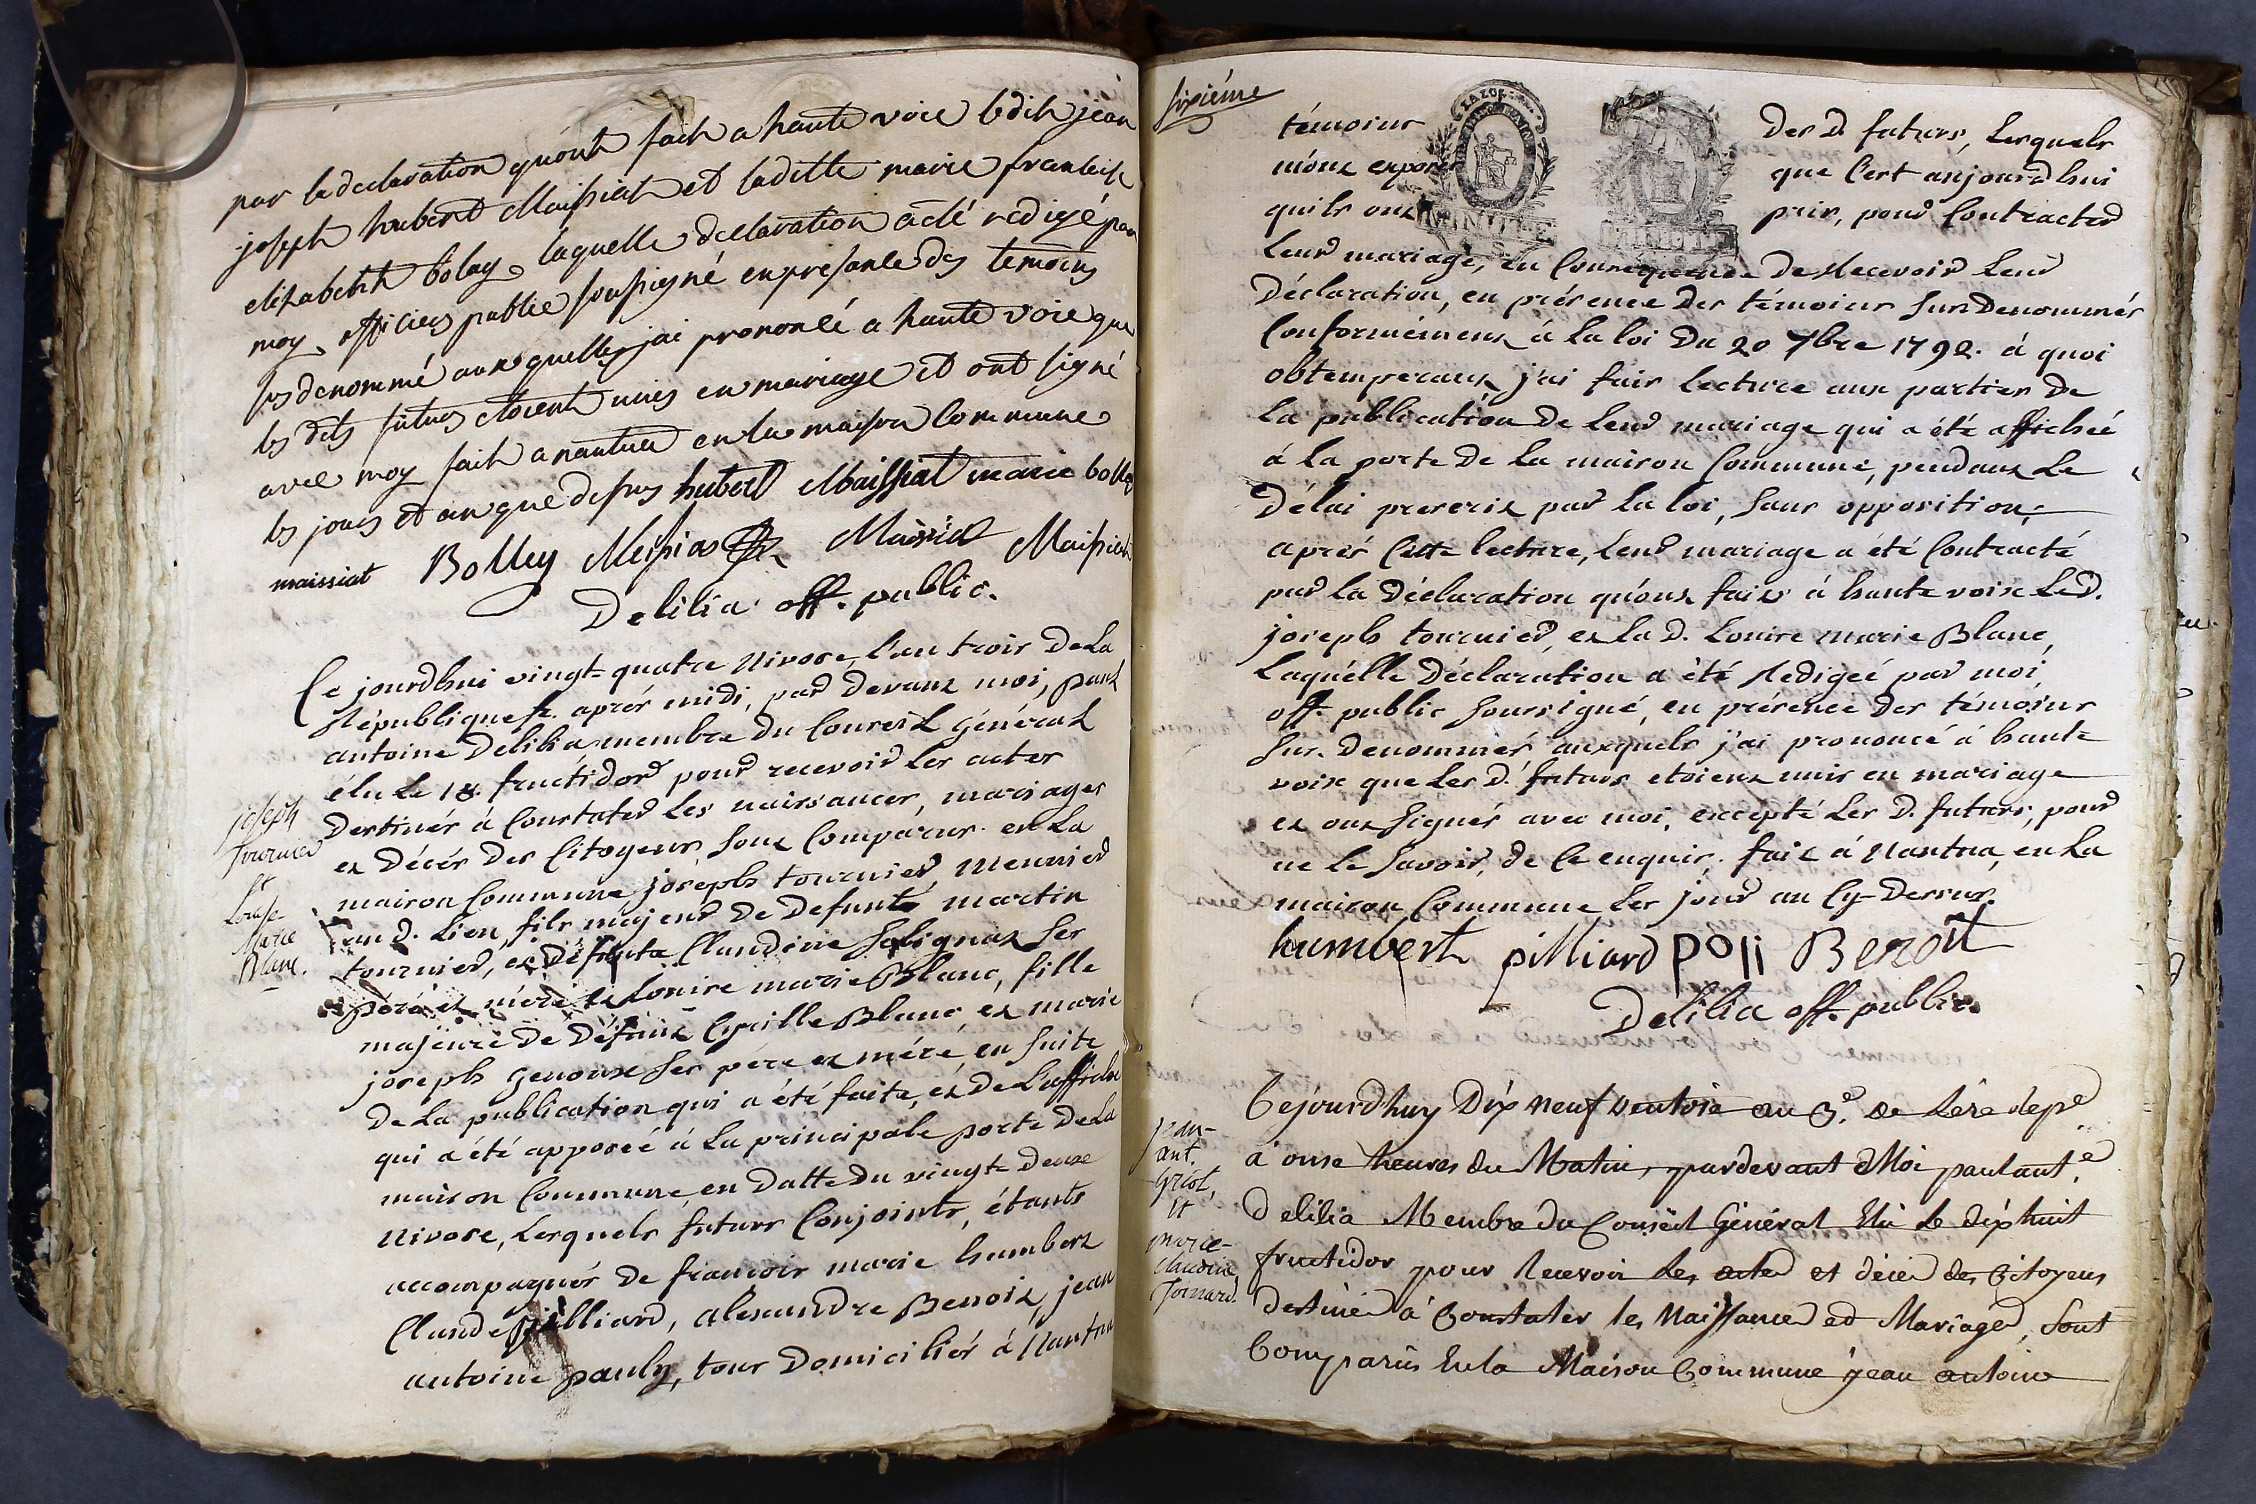 par la declaration qu'ont fait a haute voie ledit jean
joseph hubert Maissiat et laditte marie francoise
elizabeth bolay laquelle declaration a été redigé par
moy officier public soussigné en presance des temoins
susdenommé aux quelles jai prononcé a haute voie que
les dits futurs etoient unies en mariage et ont signé
avec moy fait a nantua en la maison commune
les jours et an que dessus hubert Maissiat marie bolley
maissiat Bolley Messias Maissiat Maissiat
Delilia off. public.
Joseph
Tournier
et
Louise
Marie
Blanc.
Ce jourdhui vingt-quatre Nivose, l'an trois de La
République fr. après midi, par devant moi, paul
antoine Delilia membre du Conseil général
élu Le 18. fructidor pour recevoir Les actes
Destinés à Constater Les naissances, mariages
et Décès Des Citoyens sont Comparus en La
maison Commune joseph tournier Meunier
au d. Lieu fils majeur De Defunts martin
tournier, et Défunte Claudine Salignat Ses
père et mère et Louise marie Blanc, fille
majeure De Défunt Cyrille Blanc et marie
joseph genoux Ses père et mére en suite
De La publication qui a été faite, et De L'affiche
qui a été apposée à La principale porte De La
maison Commune en Datte du vingte Deux
Nivose, Lesquels futurs Conjoints, étants
accompagnés De francois marie humbert
Claude pilliard, alexandre Benoit, jean
antoine pauly, tous Domiciliés à Nantua
sixiéme
témoins Des D. futurs, Lesquels
m'ont exposé que C'est aujourdhui
quils ont pris, pour Contracter
Leur mariage, en Consequence De Recevoir Leur
Déclaration, en présence Des témoins Sus Denommés
Conformément à La loi Du 20 7bre 1792. à quoi
obtemperant, j'ai fais lecture aux parties De
La publication De Leur mariage qui a été affichée
à La porte De La maison Commune, pendant Le
Délai prescrit par La loi, Sans opposition;
après Cette lecture, Leur mariage a été Contracté
par La Déclaration qu'ont faits à haute voix Led.
joseph tournier, et La D. Louise marie Blanc,
Laquélle Déclaration a été Redigée par moi
off. public Soussigné, en présence Des témoins
Sus-Denommés auxquels j'ai prononcé à haute
voix que Les D. futurs etoient unis en mariage
et ont Signés avec moi, excepté Les D. futurs, pour
ne Le Savoir, de Ce enquis; fait à Nantua, en La
maison Commune, Les jour an Cy-Dessus.
humbert pilliard poli Benoit
Delilia off. public.
Jean-
ant
griot,
et
marie-
claudine
Cejourd'huy Dix neuf Ventose an 3e. de l'ère répe
à onse heures du Matin, pardevant Moi paul ante.
Delilia Membre du Conseil Général Elû Le dix huit
fructidor pour Recevoir Les actes et décès des Citoyens
destinés à Constater les Naissances et Mariages, Sont
Comparûs En la Maison Commune jean antoine